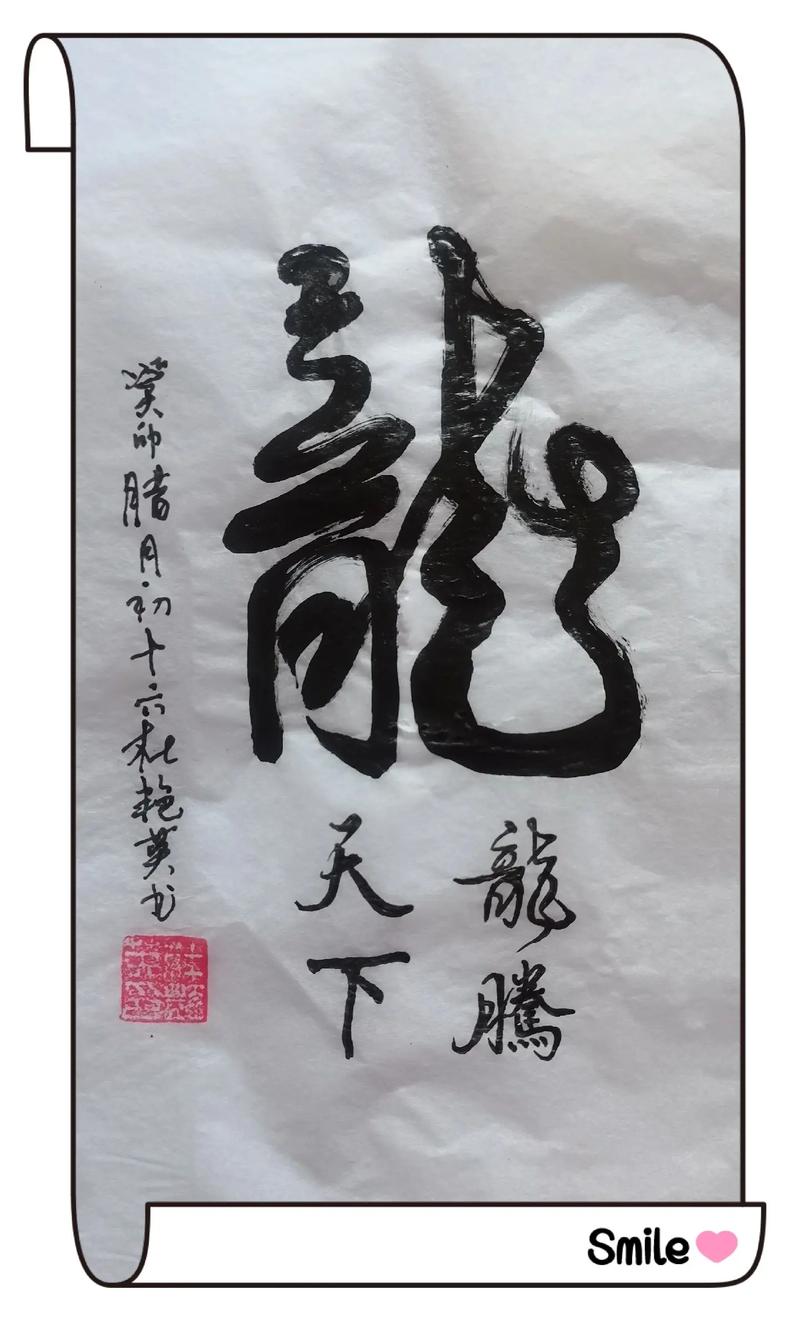 龍
龍騰
天下
癸卯腊月初十六杜艳英书
Smile